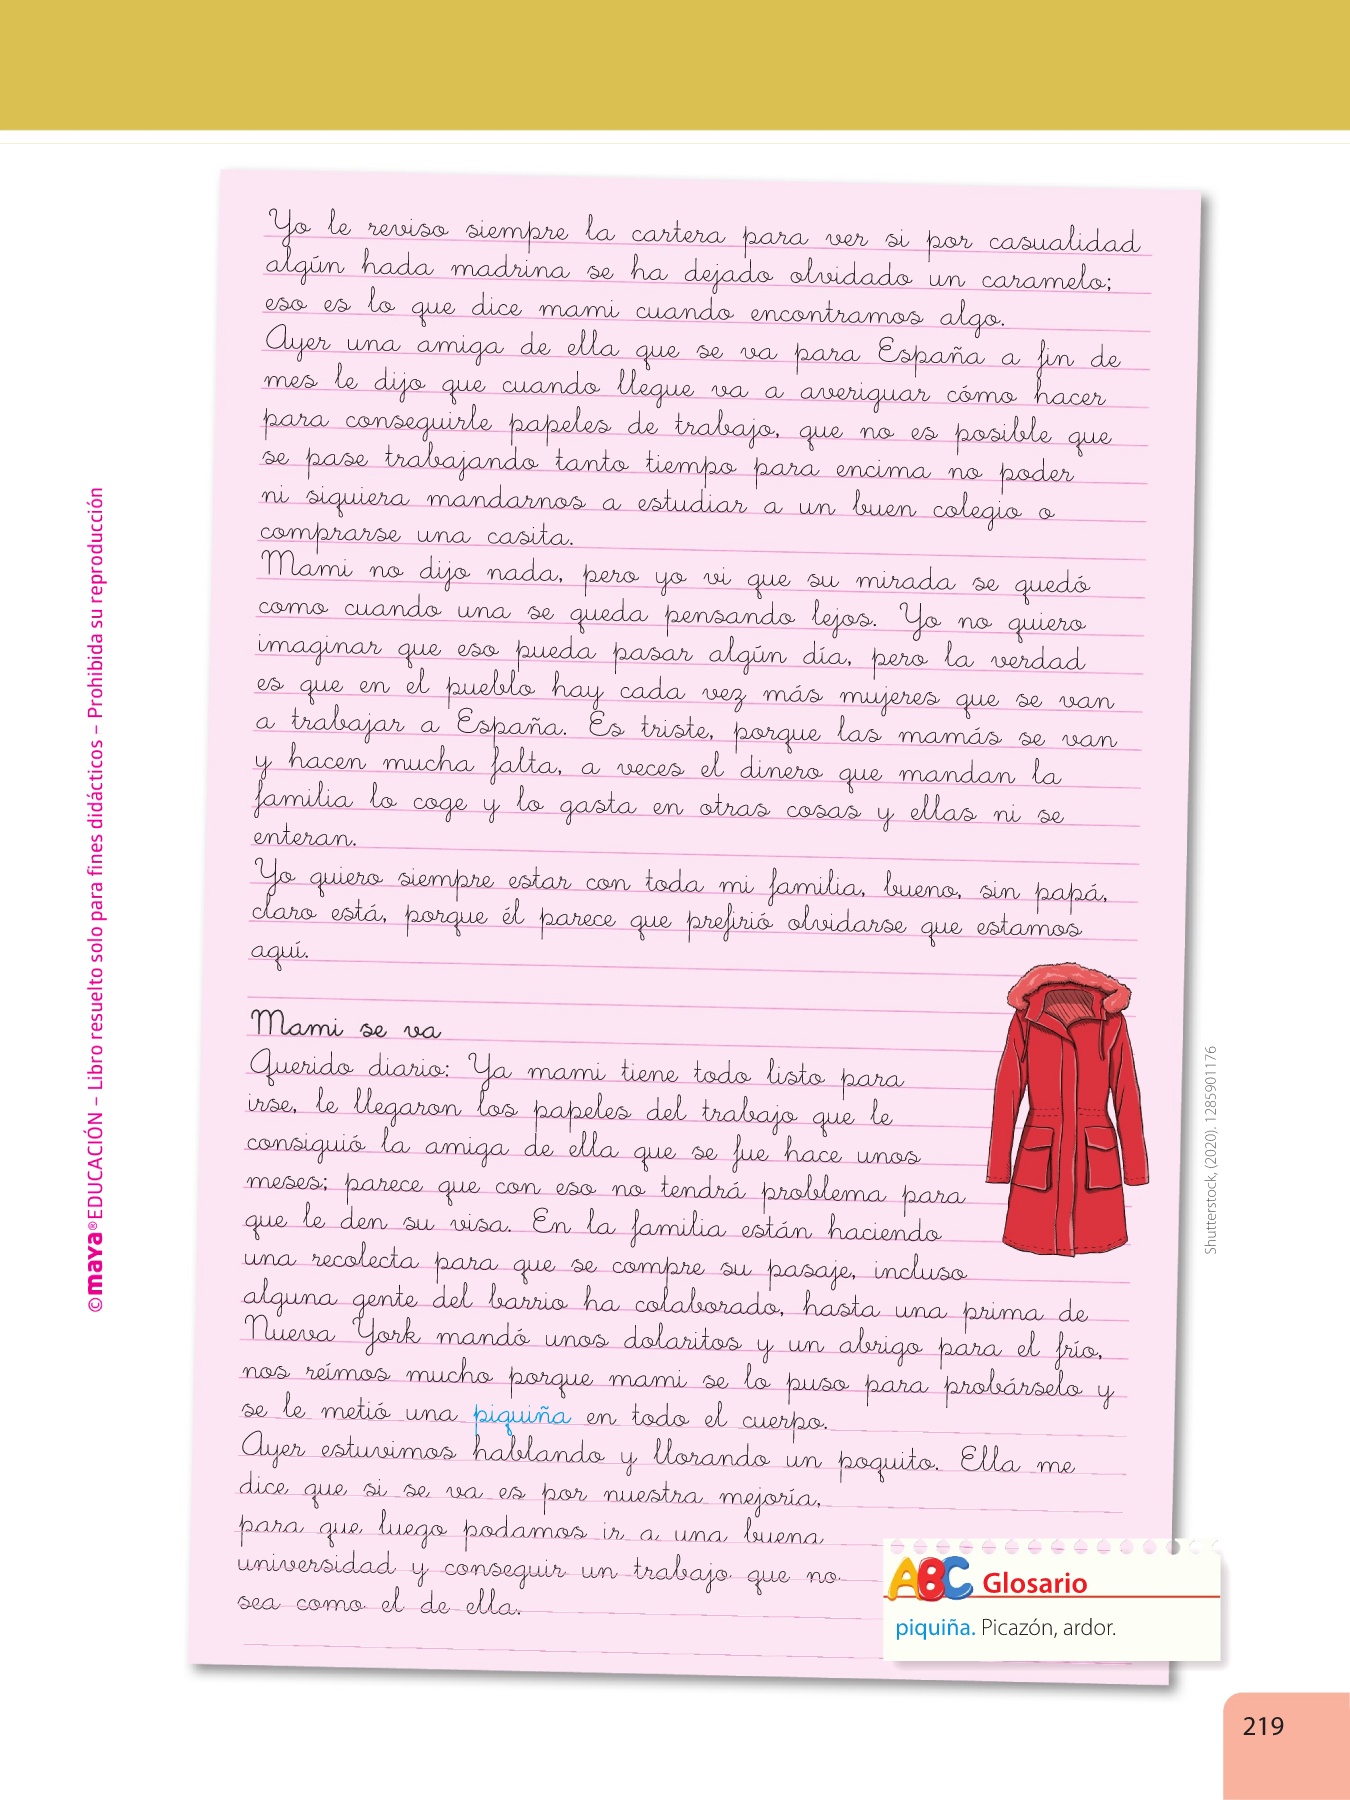 Yo le reviso siempre la cartera para ver si por casualidad
algún hada madrina se ha dejado olvidado un caramelo;
eso es lo que dice mami cuando encontramos algo.
Ayer una amiga de ella que se va para España a fin de
mes le dijo que cuando llegue va a averiguar cómo hacer
para conseguirle papeles de trabajo, que no es posible que
se pase trabajando tanto tiempo para encima no poder
ni siquiera mandarnos a estudiar a un buen colegio o
comprarse una casita.
Mami no dijo nada, pero yo vi que su mirada se quedó
como cuando una se queda pensando lejos. Yo no quiero
imaginar que eso pueda pasar algún día, pero la verdad
es que en el pueblo hay cada vez más mujeres que se van
a trabajar a España. Es triste, porque las mamás se van
y hacen mucha falta, a veces el dinero que mandan la
familia lo coge y lo gasta en otras cosas y ellas ni se
enteran.
Yo quiero siempre estar con toda mi familia, bueno, sin papá,
claro está, porque él parece que prefirió olvidarse que estamos
aquí.
Mami se va
Querido diario: Ya mami tiene todo listo para
irse, le llegaron los papeles del trabajo que le
consiguió la amiga de ella que se fue hace unos
meses; parece que con eso no tendrá problema para
que le den su visa. En la familia están haciendo
una recolecta para que se compre su pasaje, incluso
alguna gente del barrio ha colaborado, hasta una prima de
Nueva York mandó unos dolaritos y un abrigo para el frío,
nos reímos mucho porque mami se lo puso para probárselo y
se le metió una piquiña en todo el cuerpo.
Ayer estuvimos hablando y llorando un poquito. Ella me
dice que si se va es por nuestra mejoría,
para que luego podamos ir a una buena
universidad y conseguir un trabajo que no
sea como el de ella.
ABC Glosario
piquiña. Picazón, ardor.
©maya®EDUCACIÓN – Libro resuelto solo para fines didácticos – Prohibida su reproducción
Shutterstock, (2020). 1285901176
219